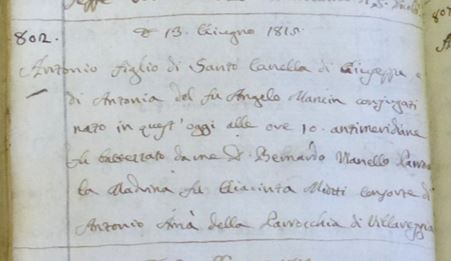 802.
D 13. Giugno 1815.
Antonio figlio di Santo Canella di Giuseppe e
di Antonia del fu Angelo Mancin conjugati
nato in quest'oggi alle ore 10. antimeridiane
fu battezzato da me D. Bernardo Nanello
la Madrina fu Giacinta Miotti consorte di
Antonio Amà della Parrocchia di Villareggia